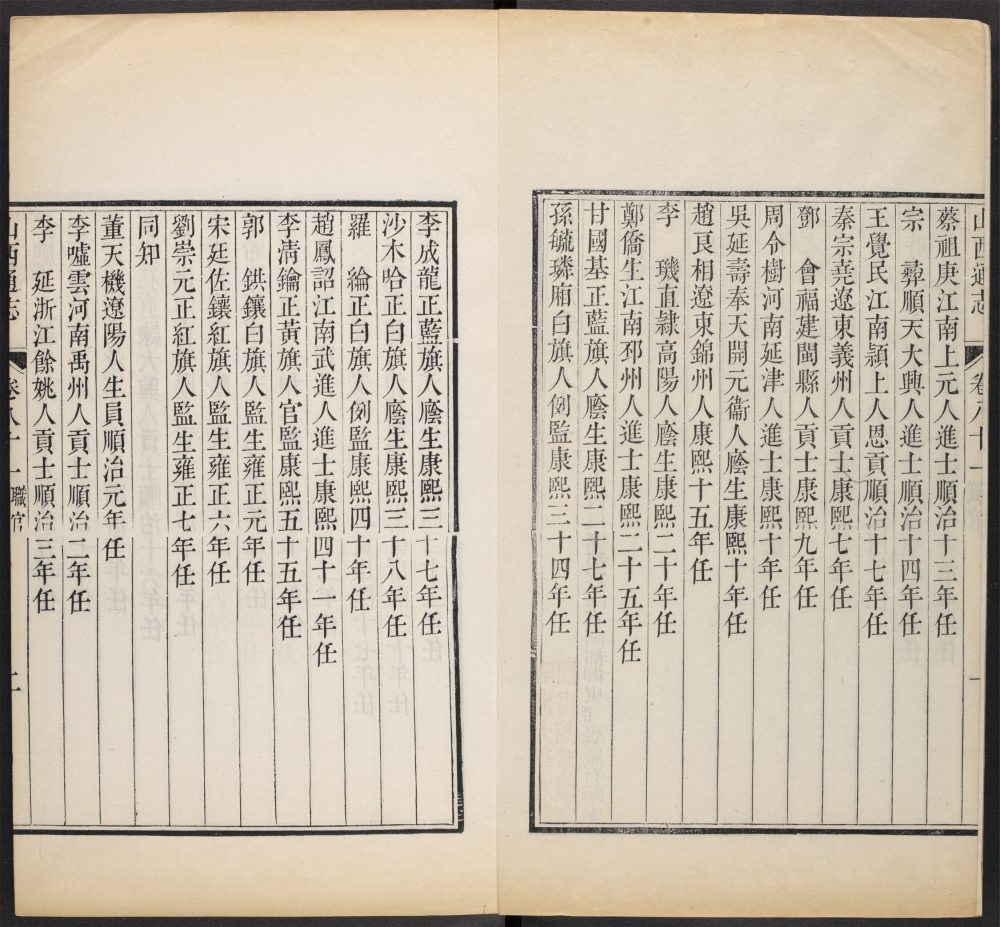 山西通志 卷八十一 一
蔡祖庚江南上元人進士順治十三年任
宗 彝順天大興人進士順治十四年任
王覺民江南潁上人恩貢順治十七年任
秦宗堯遼東義州人貢士康熙七年任
鄧 會福建閩縣人貢士康熙九年任
周令樹河南延津人進士康熙十年任
吳延壽奉天開元衞人廕生康熙十年任
趙良相遼東錦州人康熙十五年任
李 璣直隸高陽人廕生康熙二十年任
鄭僑生江南邳州人進士康熙二十五年任
甘國基正藍旗人廕生康熙二十七年任
孫毓璘廂白旗人例監康熙三十四年任
李成龍正藍旗人廕生康熙三十七年任
沙木哈正白旗人廕生康熙三十八年任
羅 綸正白旗人例監康熙四十年任
趙鳳詔江南武進人進士康熙四十一年任
李淸鑰正黃旗人官監康熙五十五年任
郭 鉷鑲白旗人監生雍正元年任
宋廷佐鑲紅旗人監生雍正六年任
劉崇元正紅旗人監生雍正七年任
同知
董天機遼陽人生員順治元年任
李噓雲河南禹州人貢士順治二年任
李 延浙江餘姚人貢士順治三年任
山西通志 卷八十一 職官 二